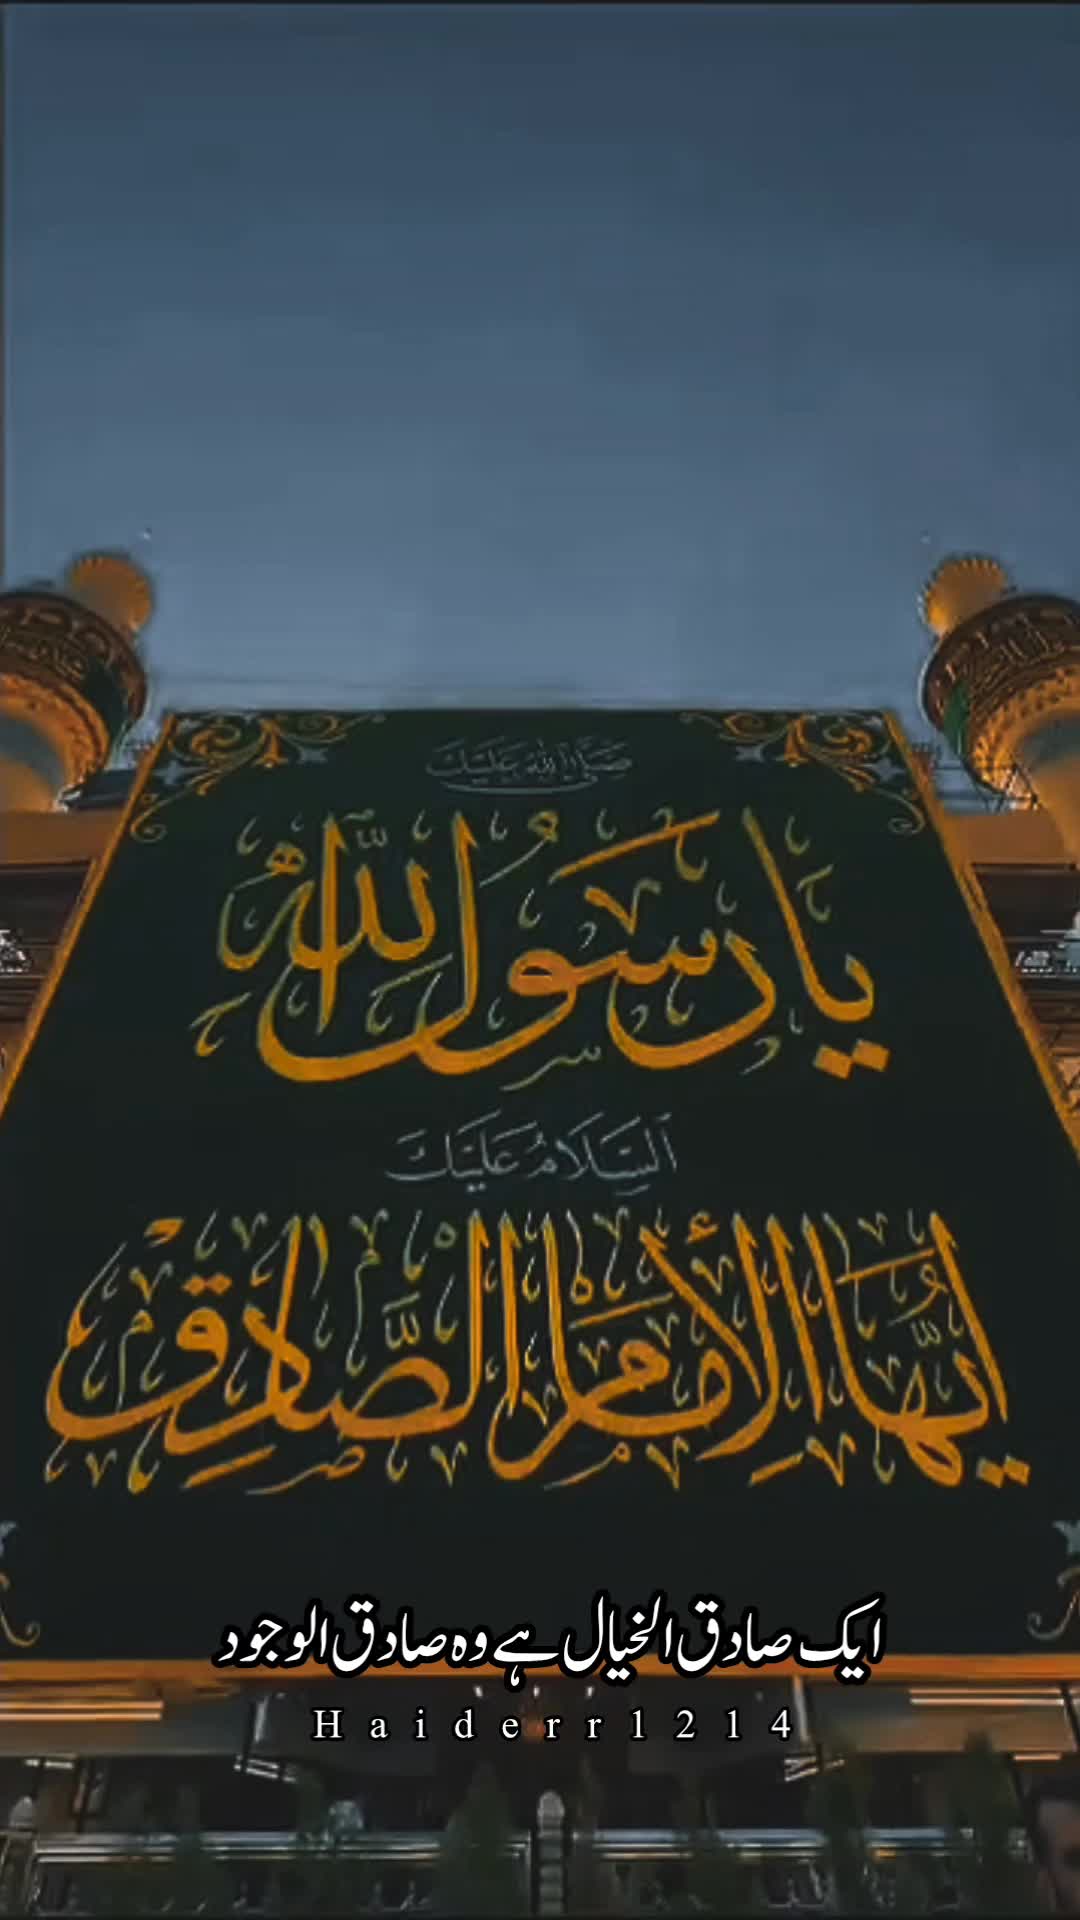 صَلَّى اللهُ عَلَيْكَ
يَا رَسُولَ اللهِ
اَلسَّلَامُ عَلَيْكَ
اَيُّهَا الْإِمَامُ الصَّادِقُ
ایک صادق الخیال ہے وہ صادق الوجود
Haiderr1214